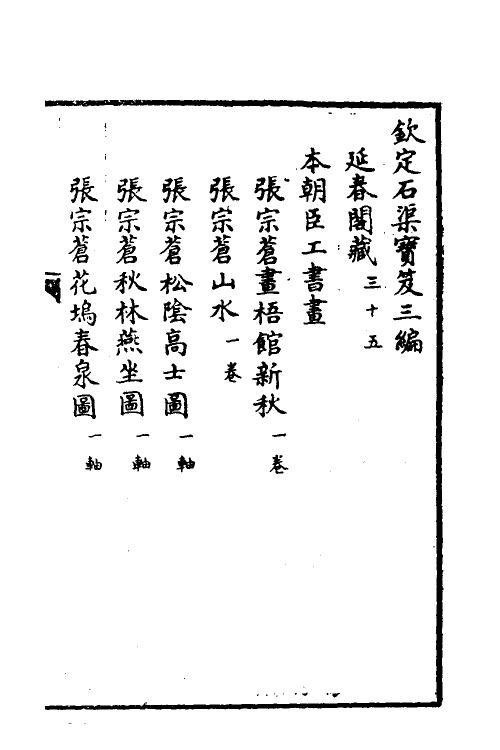 欽定石渠寶笈三編
延春閣藏三十五
本朝臣工書畫
張宗蒼畫梧館新秋一卷
張宗蒼山水一卷
張宗蒼松陰高士圖一軸
張宗蒼秋林燕坐圖一軸
張宗蒼花塢春泉圖一軸